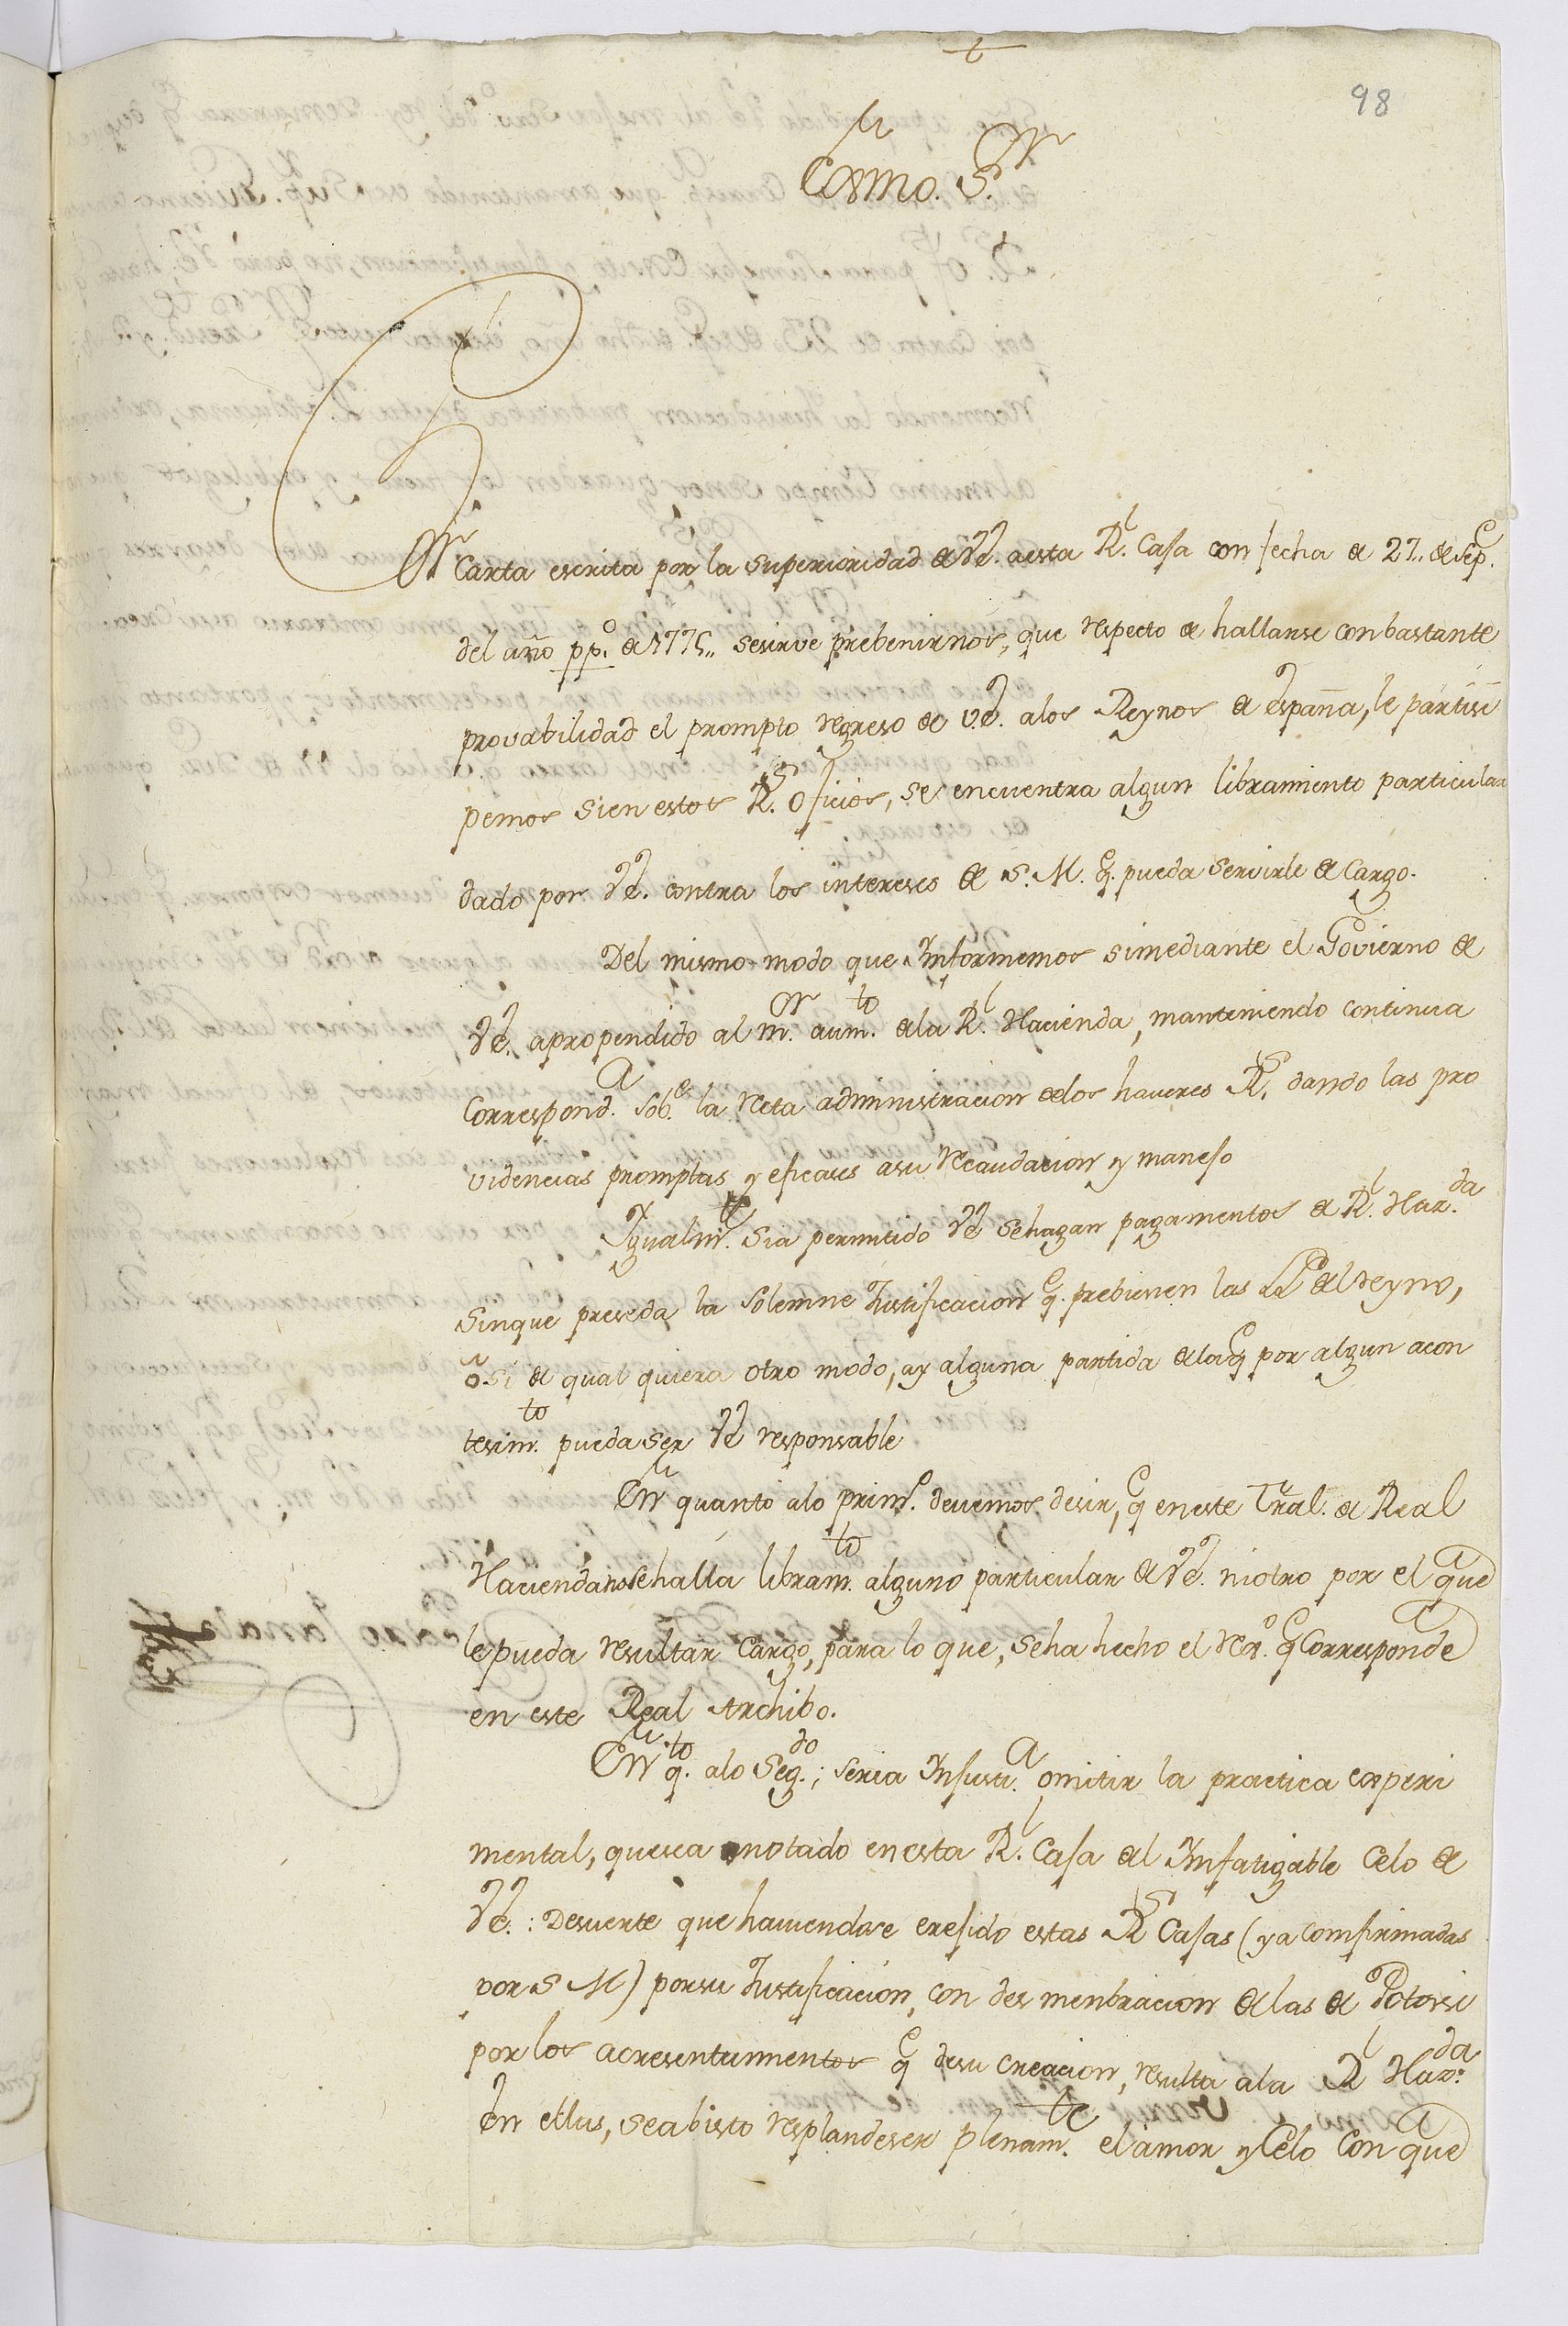 98
Exmo. S.or
En Carta escrita por la Superioridad de VE. aesta R.l Casa con fecha de 27,, de Sep.e
del año pp.o de 1775,, sesirve prebenirnos, que respecto de hallarse conbastante
provabilidad el prompto regreso de V.E. alos Reynos de españa, le partisi
pemos sien estos R.s Oficios, se encuentra algun libramiento particular
dado por VE. contra los intereses de S. M. q.e pueda Servirle de Cargo.
Del mismo modo que Informemos simediante el Govierno de
VE. apropendido al m.or aum.to dela R.l Hacienda, manteniendo continua
Correspond.a sob.e la Recta administracion delos haveres R.s dando las pro
videncias promptas y eficases asu Recaudacion y manejo
Igualm.te Sia permitido VE sehagan pagamentos de R.l Haz.da
Sinque preseda la Solemne Justificacion q.e prebienen las LL.es del Reyno,
o Si de qual quiera otro modo, ay alguna partida delaq.e por algun acon
tesim.to pueda Ser VE responsable
En quanto alo prim.o devemos desir, q.e eneste Tral. de Real
Hacienda nosehalla libram.to alguno particular de VE. niotro por el que
lepueda resultar Cargo, para lo que, Seha hecho el Rex.o q.e Corresponde
en este Real Archibo.
En q.to alo Seg.do; seria Injusti.a omitir la practica experi
mental, quesea notado enesta R.l Casa del Infatigable Celo de
VE.: Desuerte que haviendose erejido estas R.s Casas (ya comfirmadas
por S M) porsu Justificacion, con des menbracion delas de Potosi
por los acresentamientos q.e desu creacion, resulta ala R.l Haz.da
En ellas, seabisto resplandeser plenam.te el amor y Celo Con que